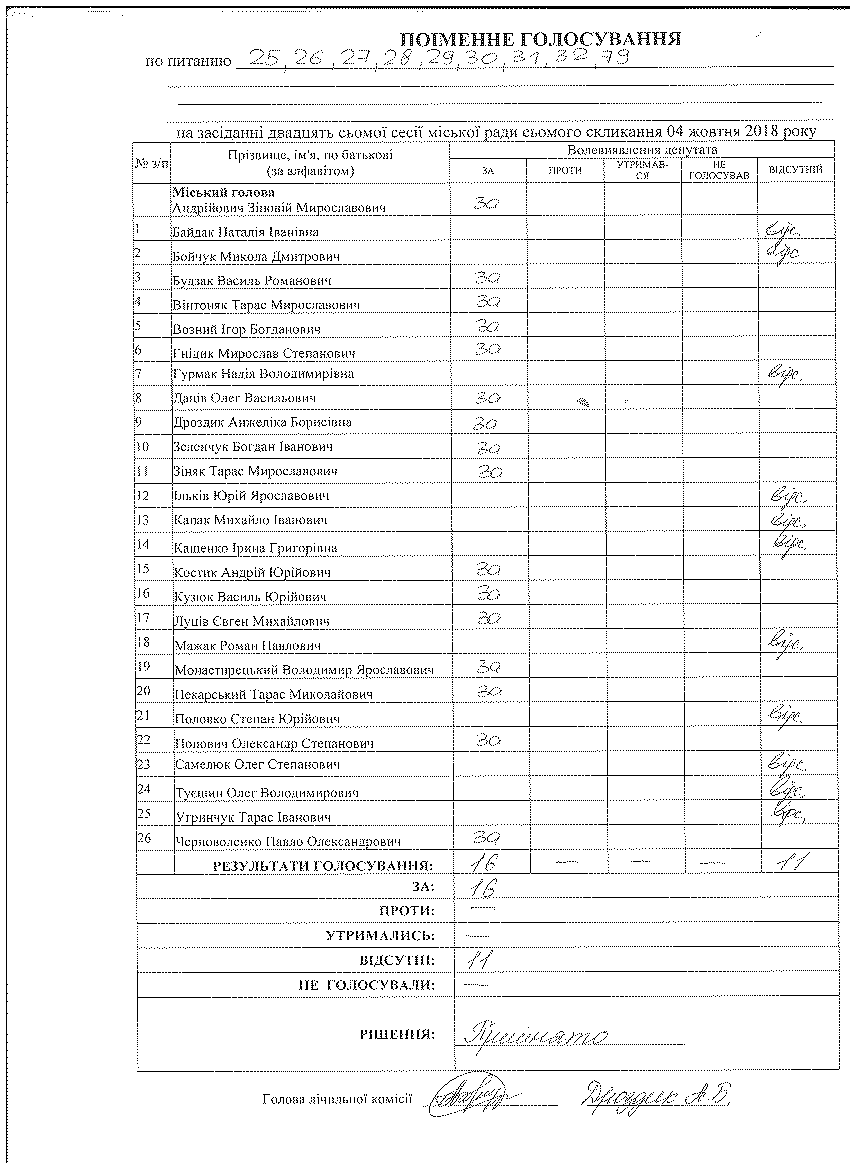 ПОІМЕННЕ ГОЛОСУВАННЯ
по питанню 25, 26, 27, 28, 29, 30, 31, 32, 79
на засіданні двадцять сьомої сесії міської ради сьомого скликання 04 жовтня 2018 року
№ з/п Прізвище, ім'я, по батькові (за алфавітом) Волевиявлення депутата
ЗА ПРОТИ УТРИМАВ-СЯ НЕ ГОЛОСУВАВ ВІДСУТНІЙ
Міський голова
Андрійович Зіновій Мирославович за
1 Байдак Наталія Іванівна відс.
2 Бойчук Микола Дмитрович відс.
3 Будзак Василь Романович за
4 Вінтоняк Тарас Мирославович за
5 Возний Ігор Богданович за
6 Гніцик Мирослав Степанович за
7 Гурмак Надія Володимирівна відс.
8 Даців Олег Васильович за
9 Дроздик Анжеліка Борисівна за
10 Зеленчук Богдан Іванович за
11 Зіняк Тарас Мирославович за
12 Ільків Юрій Ярославович відс.
13 Капак Михайло Іванович відс.
14 Кащенко Ірина Григорівна відс.
15 Костик Андрій Юрійович за
16 Кузюк Василь Юрійович за
17 Луців Євген Михайлович за
18 Мажак Роман Павлович відс.
19 Монастирецький Володимир Ярославович за
20 Пекарський Тарас Миколайович за
21 Половко Степан Юрійович відс.
22 Попович Олександр Степанович за
23 Самелюк Олег Степанович відс.
24 Туєшин Олег Володимирович відс.
25 Угринчук Тарас Іванович відс.
26 Черноволенко Павло Олександрович за
РЕЗУЛЬТАТИ ГОЛОСУВАННЯ: 16 — — — 11
ЗА: 16
ПРОТИ: —
УТРИМАЛИСЬ: —
ВІДСУТНІ: 11
НЕ ГОЛОСУВАЛИ: —
РІШЕННЯ: Прийнято
Голова лічильної комісії Дроздик А.Б.